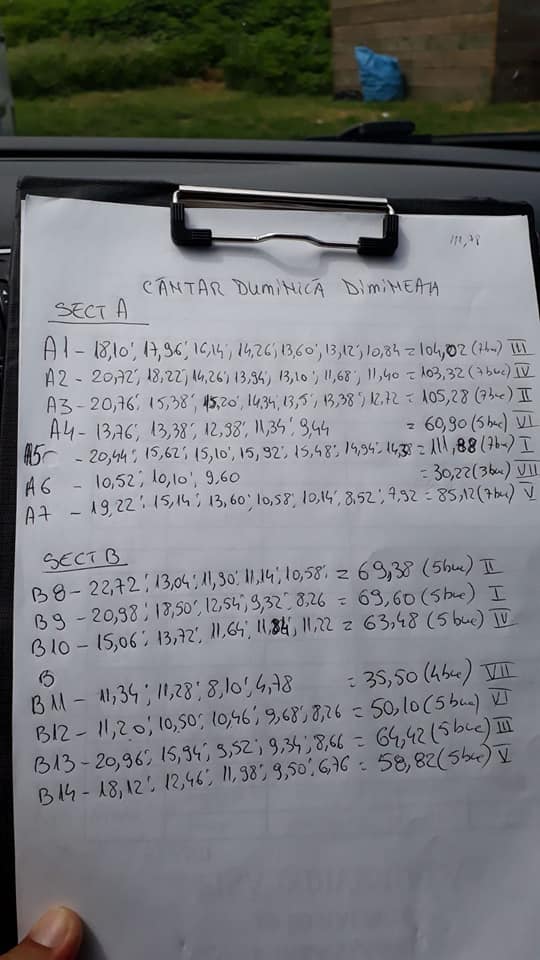 111,78
CÂNTAR DUMINICĂ DIMINEAȚA
SECT A
A1 - 18,10; 17,96; 16,14; 14,26; 13,60; 13,12; 10,84 = 104,02 (7buc) III
A2 - 20,72; 18,22; 14,26; 13,94; 13,10; 11,68; 11,40 = 103,32 (7buc) IV
A3 - 20,76; 15,38; 15,20; 14,34; 13,5; 13,38; 12,72 = 105,28 (7buc) II
A4 - 13,76; 13,38; 12,98; 11,34; 9,44 = 60,90 (5buc) VI
A5 - 20,44; 15,62; 15,10; 15,92; 15,48; 14,94; 14,38 = 111,88 (7buc) I
A6 - 10,52; 10,10; 9,60 = 30,22 (3buc) VII
A7 - 19,22; 15,14; 13,60; 10,58; 10,14; 8,52; 7,92 = 85,12 (7buc) V
SECT B
B8 - 22,72; 13,04; 11,90; 11,14; 10,58; = 69,38 (5buc) II
B9 - 20,98; 18,50; 12,54; 9,32; 8,26 = 69,60 (5buc) I
B10 - 15,06; 13,72; 11,64; 11,84; 11,22 = 63,48 (5buc) IV
B
B11 - 11,34; 11,28; 8,10; 4,78 = 35,50 (4buc) VII
B12 - 11,20; 10,50; 10,46; 9,68; 8,26 = 50,10 (5buc) VI
B13 - 20,96; 15,94; 9,52; 9,34; 8,66 = 64,42 (5buc) III
B14 - 18,12; 12,46; 11,98; 9,50; 6,76 = 58,82 (5buc) V